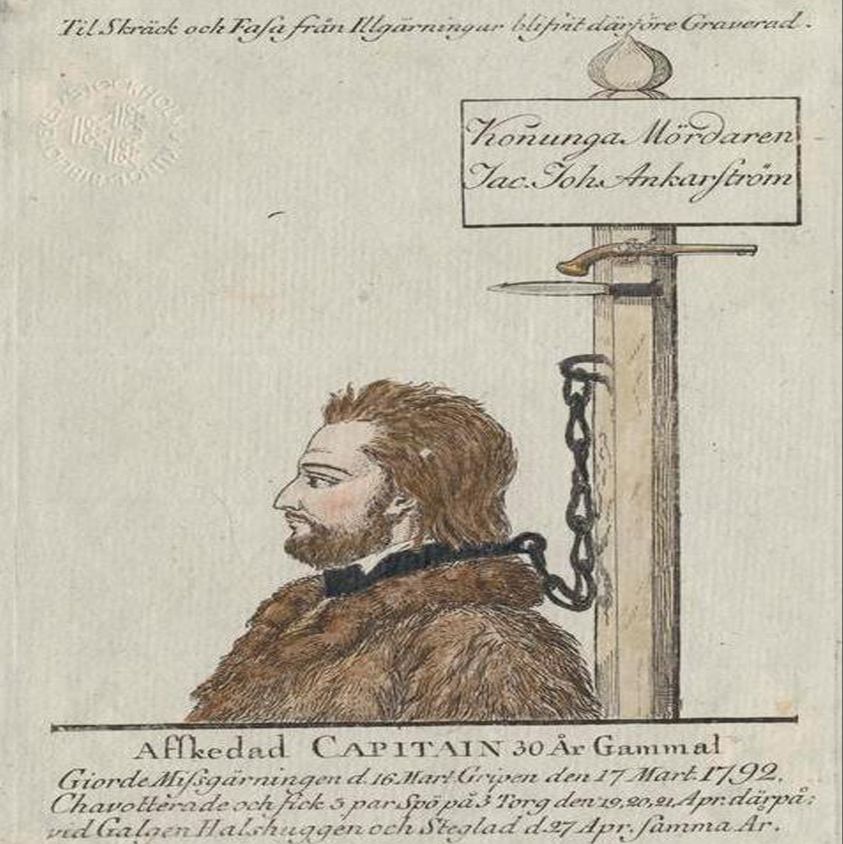 Til Skräck och Fasa från Illgärningar blifvit därföre Graverad.
Konunga Mördaren
Jac. Joh. Ankarström
Affkedad CAPITAIN 30 År Gammal
Giorde Missgärningen d. 16 Mart. Gripen den 17 Mart. 1792.
Chavotterade och fick 3 par Spö på 3 Torg den 19, 20, 21, Apr. därpå:
vid Galgen Halshuggen och Steglad d. 27 Apr. samma År.